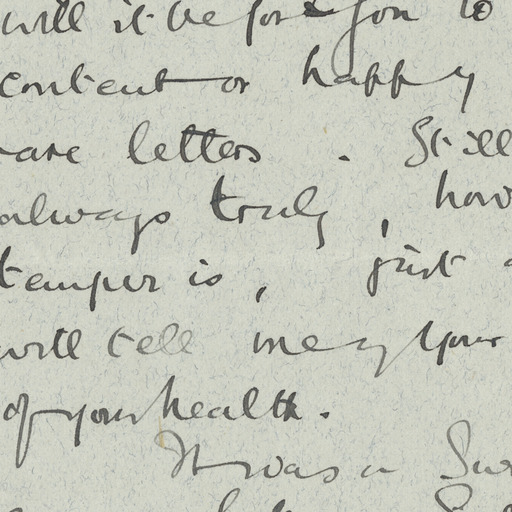 will it be for you to
content or happy
are letters . Still
always truly , how
temper is , just
will tell me of your
of your health .
It was a Sur